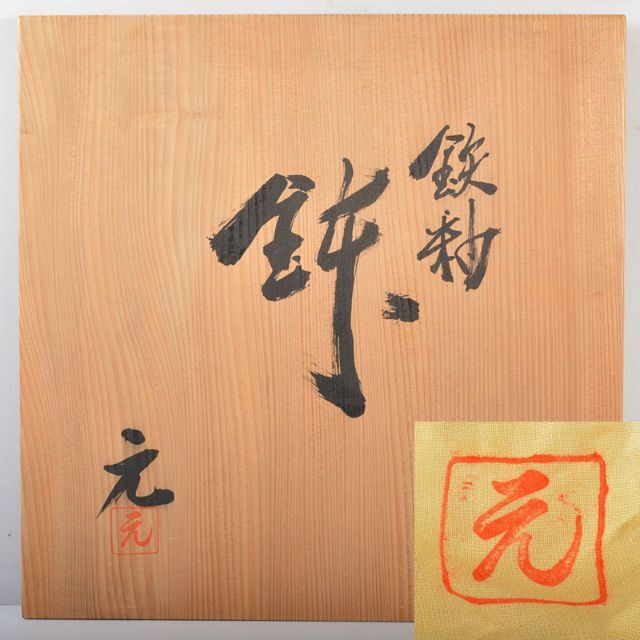 鉄釉
鉢
元
元
元